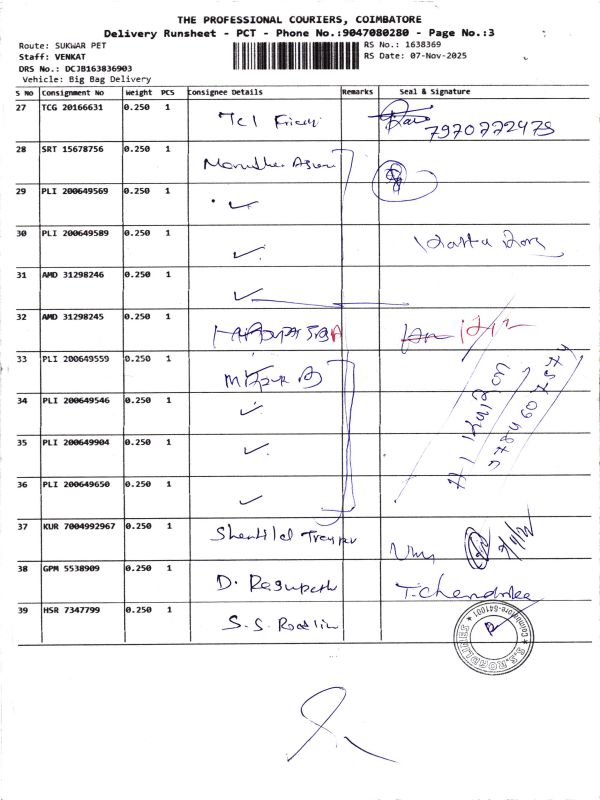 THE PROFESSIONAL COURIERS, COIMBATORE
Delivery Runsheet - PCT - Phone No.:9047080280 - Page No.:3
Route: SUKWAR PET RS No.: 1638369
Staff: VENKAT RS Date: 07-Nov-2025
DRS No.: DCJB163836903
Vehicle: Big Bag Delivery
S NO Consignment No Weight PCS Consignee Details Remarks Seal & Signature
27 TCG 20166631 0.250 1
7970222475
28 SRT 15678756 0.250 1
29 PLI 200649569 0.250 1
30 PLI 200649589 0.250 1
31 AMD 31298246 0.250 1
32 AMD 31298245 0.250 1
33 PLI 200649559 0.250 1
34 PLI 200649546 0.250 1
35 PLI 200649904 0.250 1
36 PLI 200649650 0.250 1
37 KUR 7004992967 0.250 1
38 GPM 5538909 0.250 1 D. Ragupath T.Chendrika
39 HSR 7347799 0.250 1 S.S. Roadlin
S.S.ROADLINES
Coimbatore-641001